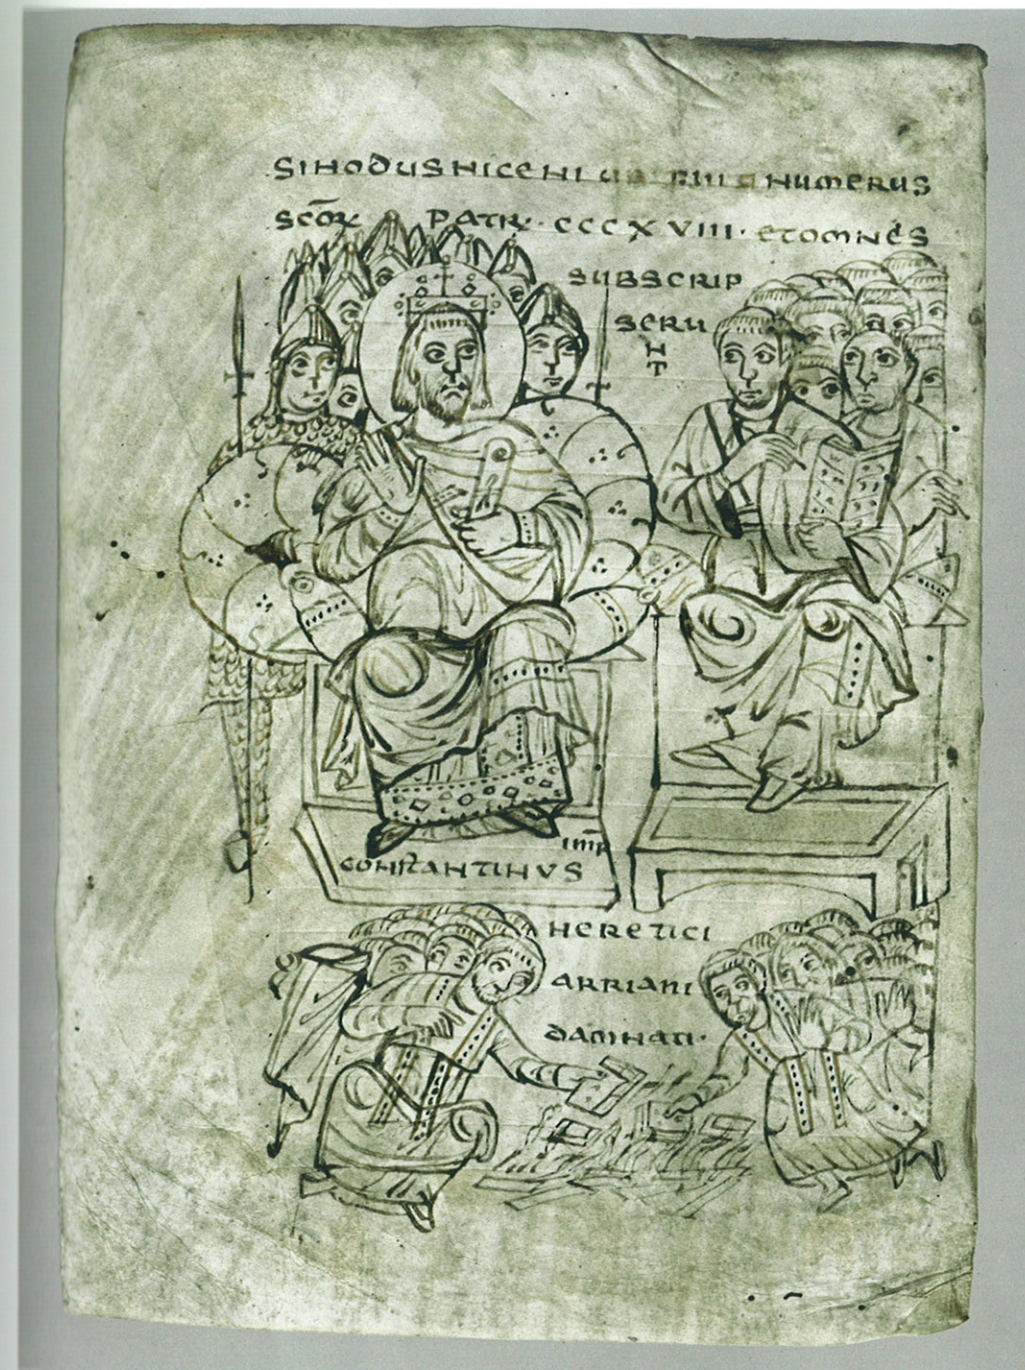 SINODUS NICENI NUMERUS
SCŌR PATR · CCCXVIII · ET OMNES
SUBSCRIP
SERU
NT
IMP
CONSTANTINUS
HERETICI
ARRIANI
DAMNATI ·